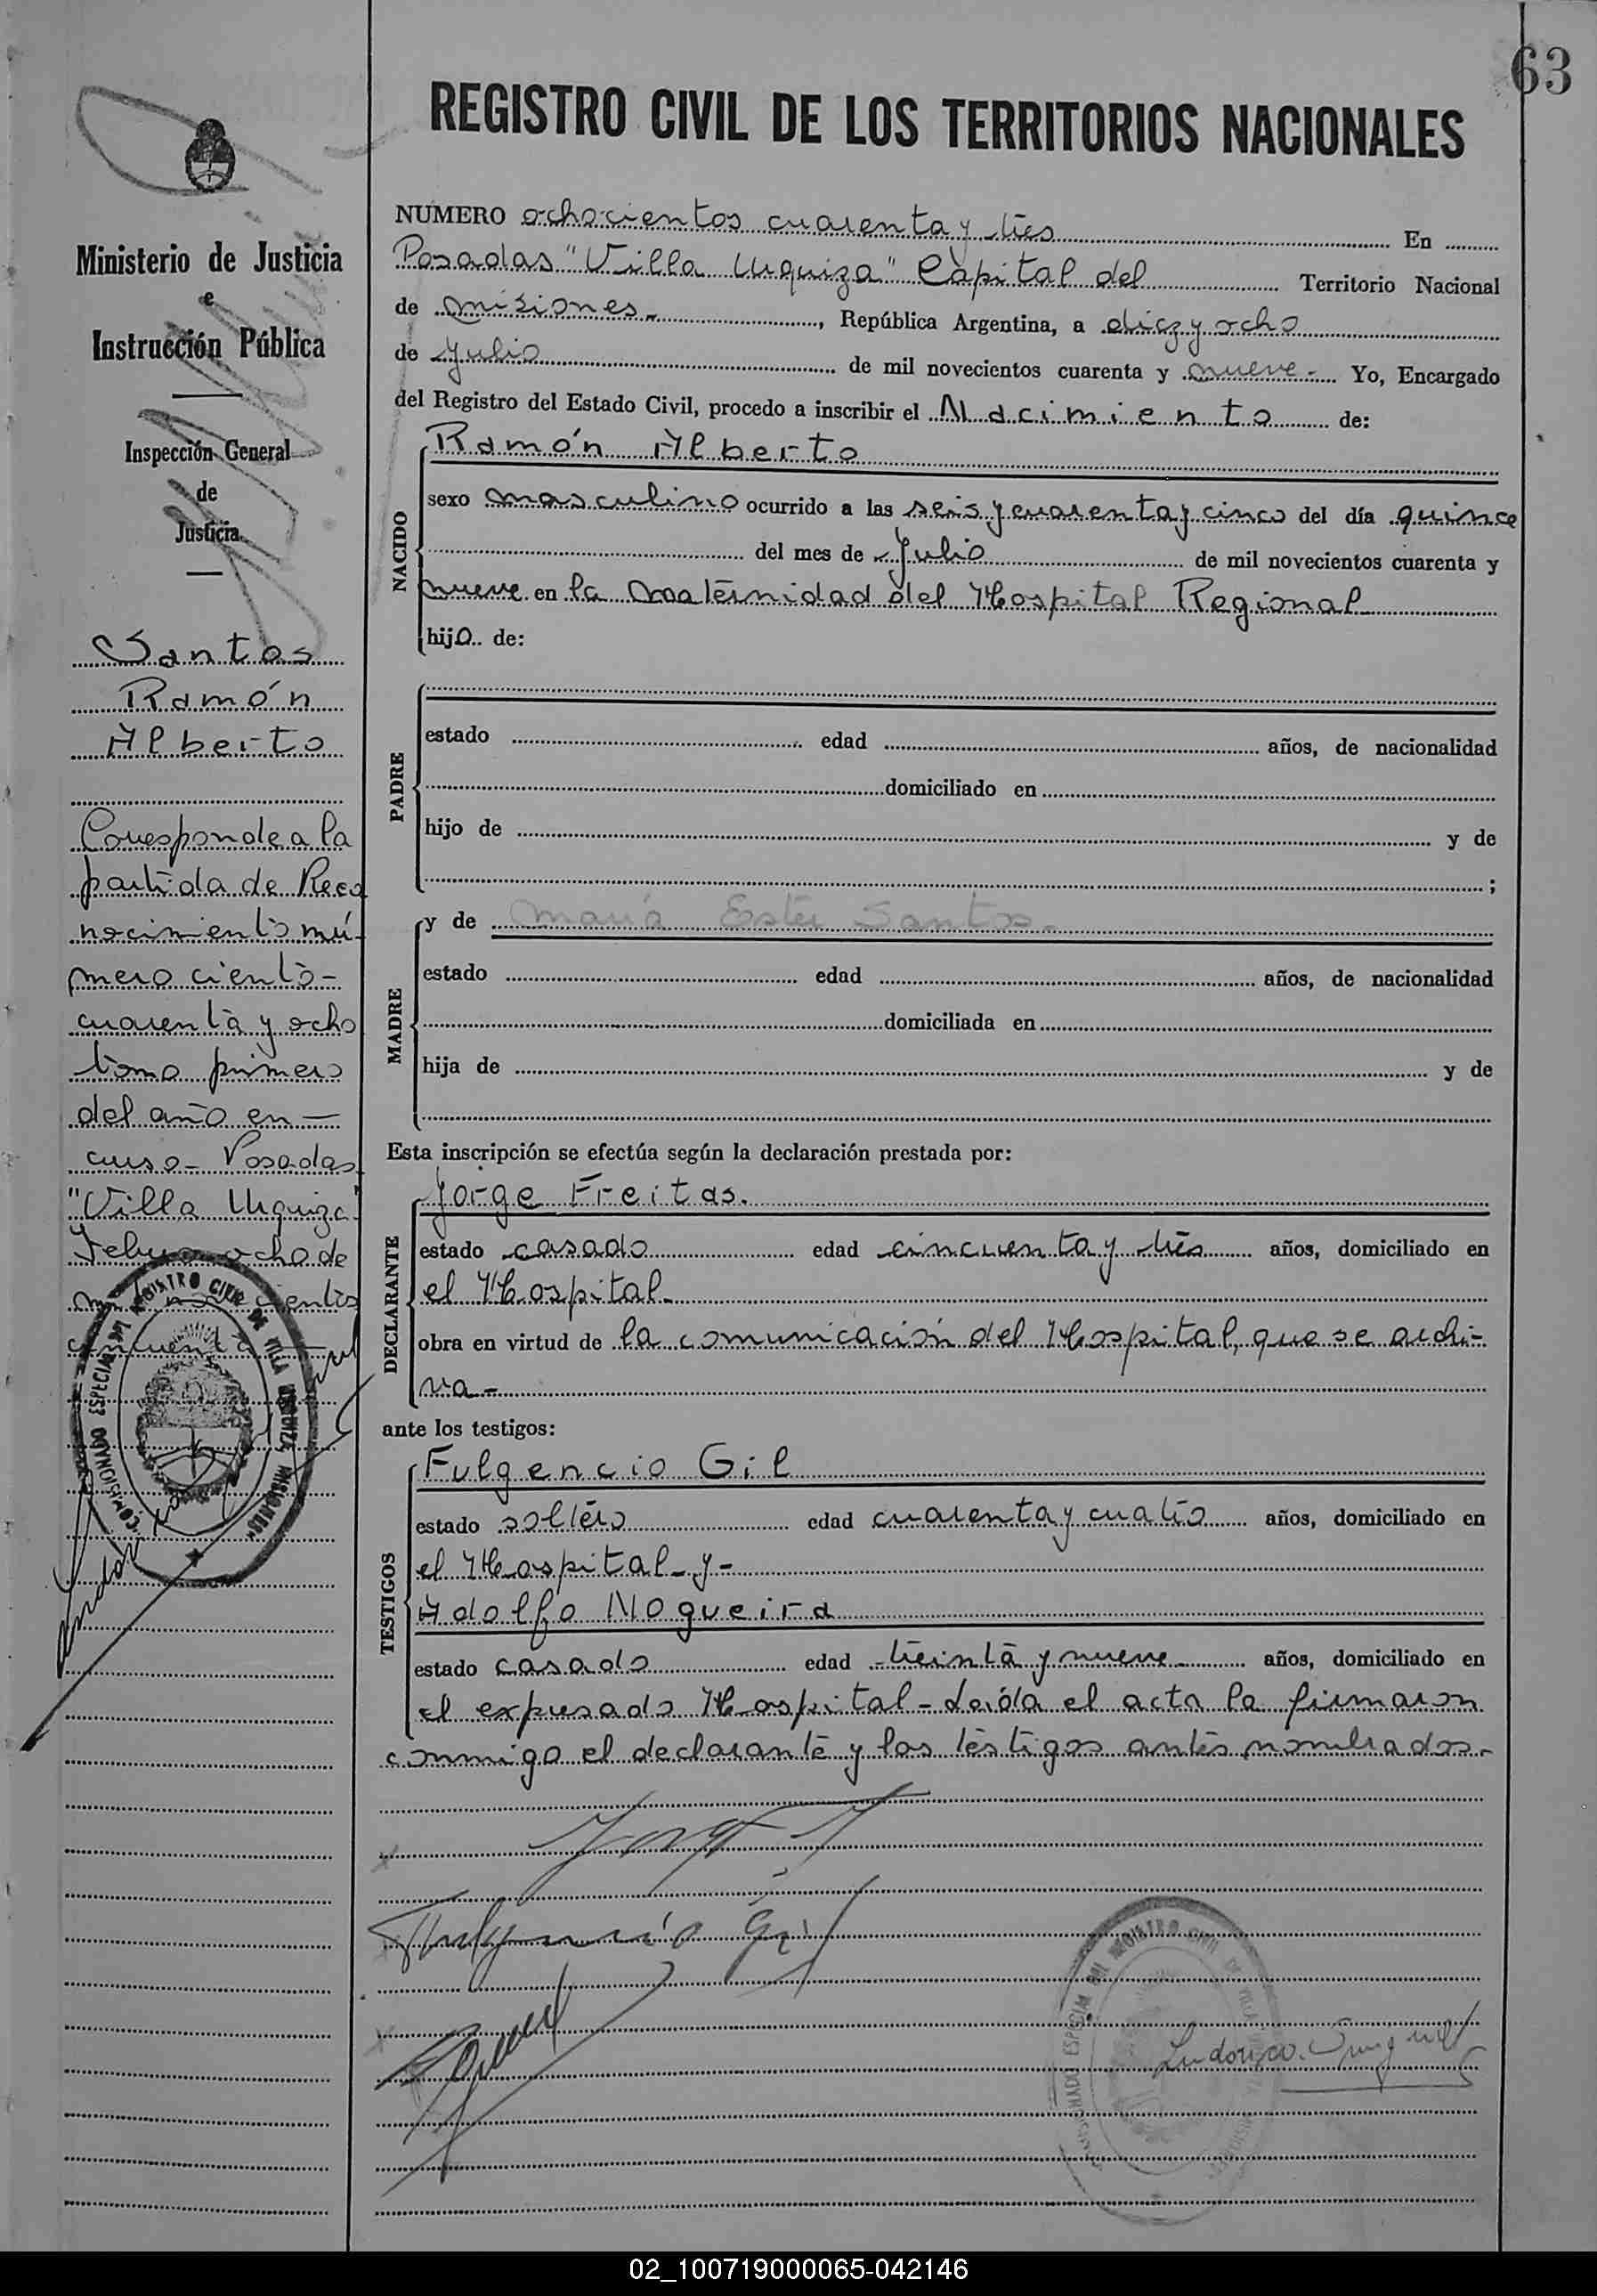 63
REGISTRO CIVIL DE LOS TERRITORIOS NACIONALES
Ministerio de Justicia
e
Instrucción Pública
Inspección General
de
Justicia
Santos
Ramón
Alberto
Corresponde a la
partida de Reco
nocimiento nú-
mero ciento-
cuarenta y ocho
tomo primero
del año en —
curso - Posadas
"Villa Urquiza"
ocho de
NUMERO ochocientos cuarenta y tres En
Posadas "Villa Urquiza" Capital del Territorio Nacional
de misiones.-, República Argentina, a diez y ocho
de Julio de mil novecientos cuarenta y nueve.- Yo, Encargado
del Registro del Estado Civil, procedo a inscribir el Nacimiento de:
NACIDO
Ramón Alberto
sexo masculino ocurrido a las seis y cuarenta y cinco del día quince
del mes de Julio de mil novecientos cuarenta y
nueve en la maternidad del Hospital Regional
hijo de:
PADRE
estado edad años, de nacionalidad
domiciliado en
hijo de y de
;
MADRE
y de María Ester Santos.-
estado edad años, de nacionalidad
domiciliada en
hija de y de
Esta inscripción se efectúa según la declaración prestada por:
DECLARANTE
Jorge Freitas.
estado casado edad cincuenta y tres años, domiciliado en
el Hospital.
obra en virtud de la comunicación del Hospital, que se archi-
va -
ante los testigos:
TESTIGOS
Fulgencio Gil
estado soltero edad cuarenta y cuatro años, domiciliado en
el Hospital - y -
Adolfo Nogueira
estado casado edad treinta y nueve años, domiciliado en
el expresado Hospital - Leída el acta la firmaron
conmigo el declarante y los testigos antes nombrados.-
Fulgencio Gil
COMISIONADO ESPECIAL DEL REGISTRO CIVIL DE VILLA URQUIZA MISIONES
02_100719000065-042146